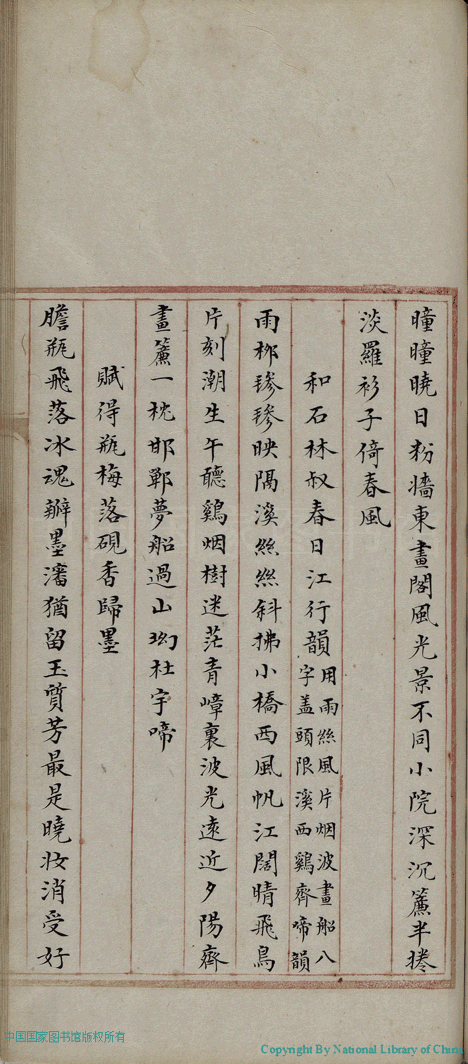 曈曈曉日粉牆東畫閣風光景不同小院深沉簾半捲
淡羅衫子倚春風
和石林叔春日江行韻用雨絲風片烟波畫船八字盖頭限溪西鷄齊啼韻
雨栁毵毵映隔溪絲絲斜拂小橋西風帆江闊晴飛鳥
片刻潮生午聽鷄烟樹迷茫青嶂裏波光遠近夕陽齊
畫簾一枕邯鄲夢船過山坳杜宇啼
賦得瓶梅落硯香歸墨
膽瓶飛落冰魂瓣墨瀋猶留玉質芳最是曉妝消受好
中国国家图书馆版权所有
Copyright By National Library of China